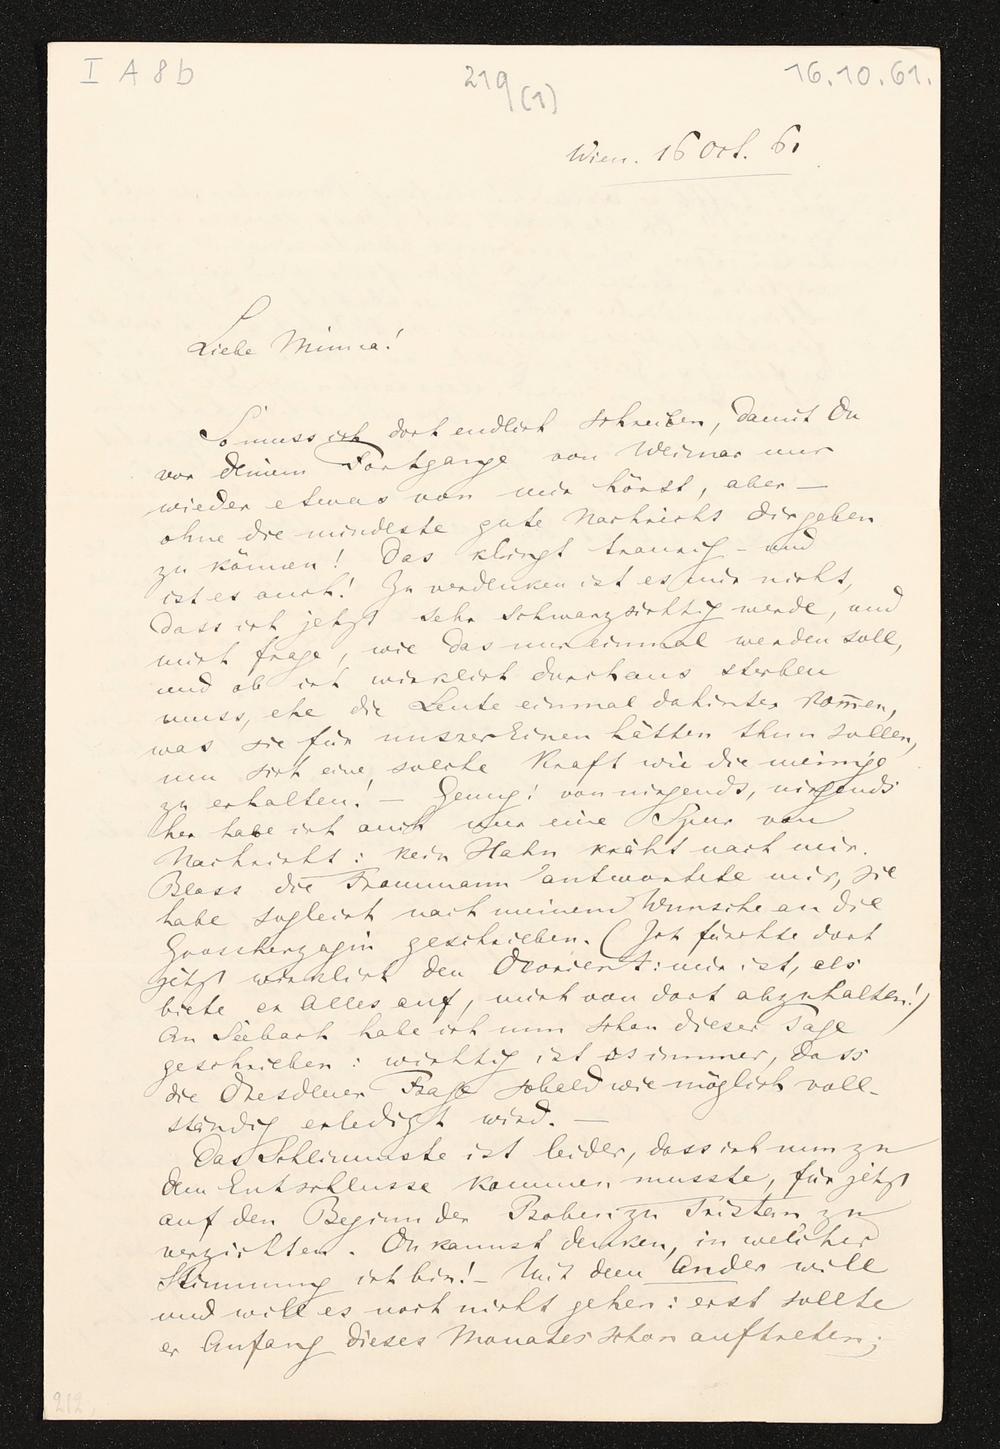 I A 8 b
219
(1)
16.10.61.
Wien. 16 Oct. 61
Liebe Minna!
So muss ich doch endlich schreiben, damit Du
vor deinem Fortgange von Weimar nur
wieder etwas von mir hörst, aber —
ohne die mindeste gute Nachricht dir geben
zu können! Das klingt traurig – und
ist es auch! Zu verdenken ist es mir nicht,
dass ich jetzt sehr schwarzsichtig werde, und
mich frage, wie das nur einmal werden soll,
und ob ich wirklich durchaus sterben
muss, ehe die Leute einmal dahinter kom̄en,
was sie für unsereEinen hätten thun sollen,
um sich eine solche Kraft wie die meinige
zu erhalten! — Genug! von nirgends, nirgends
her habe ich auch nur eine Spur von
Nachricht: kein Hahn kräht nach mir.
Bloss die Frommann antwortete mir, sie
habe sogleich nach meinem Wunsche an die
Grossherzogin geschrieben. (Ich fürchte dort
jetzt wirklich den Devrient: mir ist, als
biete er Alles auf, mich von dort abzuhalten!)
An Seebach habe ich nun schon dieser Tage
geschrieben: wichtig ist es immer, dass
die Dresdener Frage sobald wie möglich voll-
ständig erledigt wird. —
Das Schlimmste ist leider, dass ich nun zu
dem Entschlusse kommen musste, für jetzt
auf den Beginn der Proben zu Tristan zu
verzichten. Du kannst denken, in welcher
Stimmung ich bin! – Mit dem Ander will
und will es noch nicht gehen: erst sollte
er Anfang dieses Monates schon auftreten;
212.